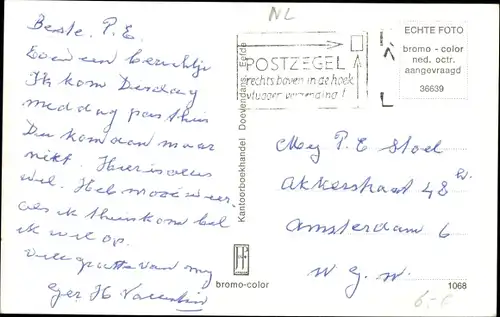 NL
Beste P.E.
Even een berichtje
Ik kom Dinsdag
middag pas thuis
Dus kom dan maar
niet. Hier is alles
wel. Heb mooi weer.
als ik thuis kom bel
ik wel op.
Vele groeten van my
Ger. H. Valentin
Kantoorboekhandel Doevendans, Eefde
bromo-color
POSTZEGEL
rechts boven in de hoek
vlugger verzending!
ECHTE FOTO
bromo - color
ned. octr.
aangevraagd
36639
Mej P. E Stoel
Akkerstraat 48
Amsterdam 6
1068